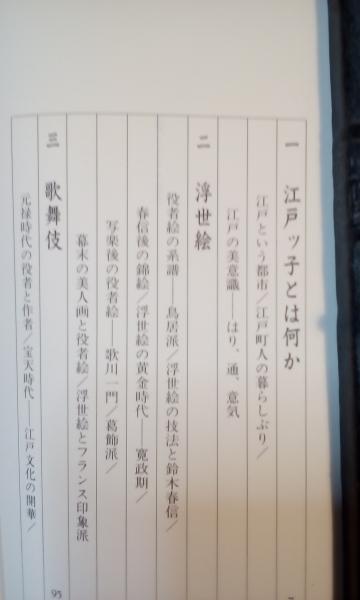 一 江戸ッ子とは何か
江戸という都市／江戸町人の暮らしぶり／
江戸の美意識――はり、通、意気
二 浮世絵
役者絵の系譜――鳥居派／浮世絵の技法と鈴木春信／
春信後の錦絵／浮世絵の黄金時代――寛政期／
写楽後の役者絵――歌川一門／葛飾派／
幕末の美人画と役者絵／浮世絵とフランス印象派
三 歌舞伎
95
元禄時代の役者と作者／宝天時代――江戸文化の開華／